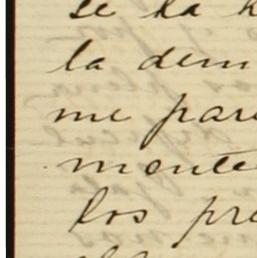 se la h
la dem
me par
monte
los pre